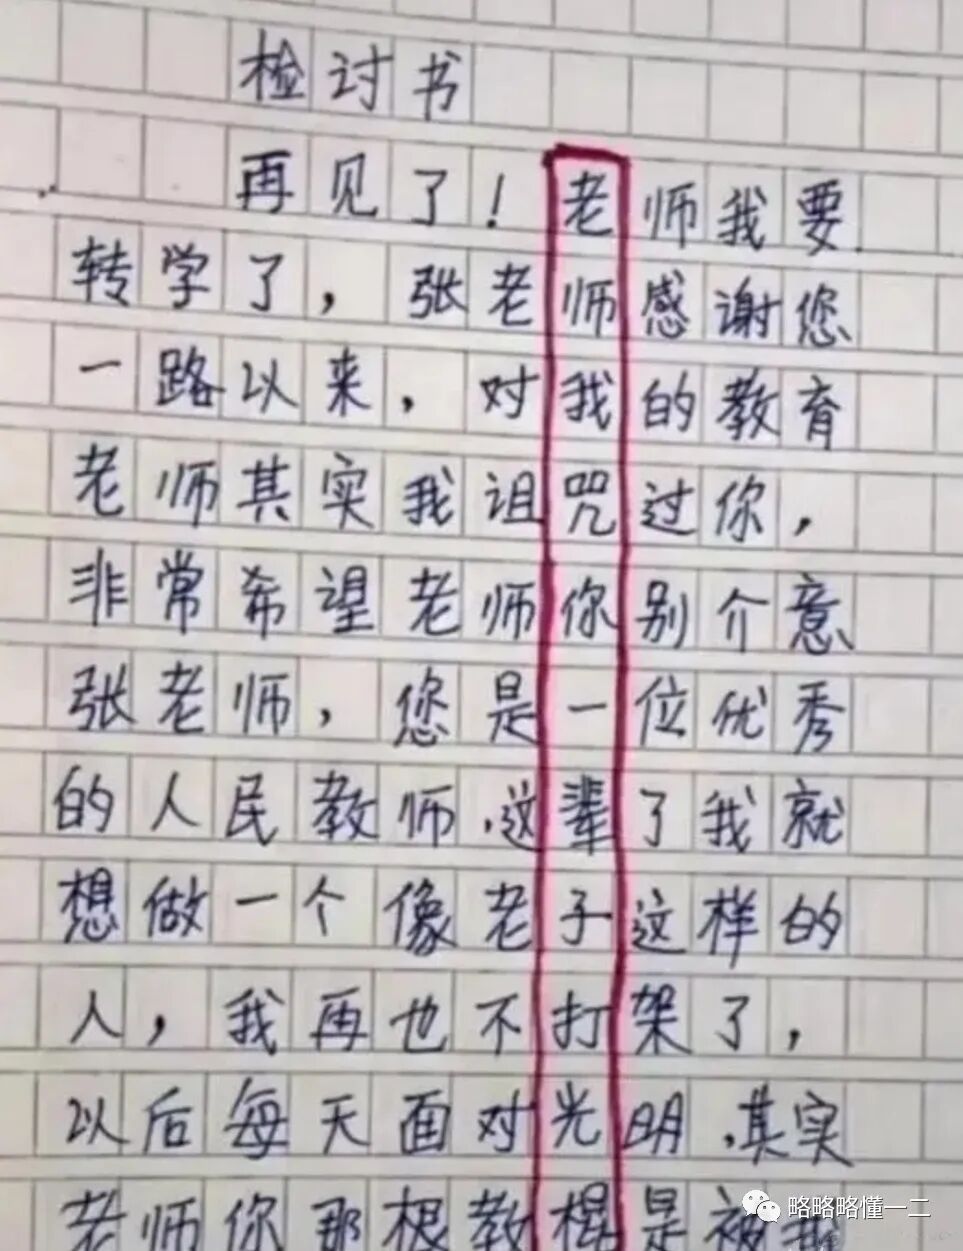 检讨书
再见了！老师我要
转学了，张老师感谢您
一路以来，对我的教育
老师其实我诅咒过你，
非常希望老师你别介意
张老师，您是一位优秀
的人民教师.这辈了我就
想做一个像老子这样的
人，我再也不打架了，
以后每天面对光明.其实
老师你那根教棍是被我
略略略懂一二